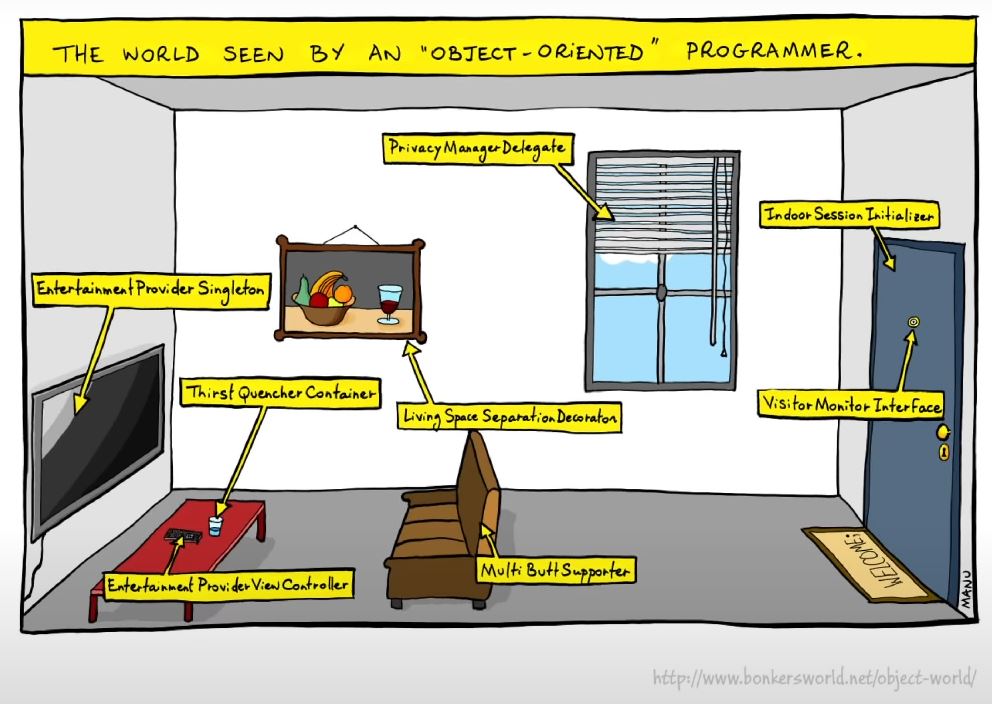 THE WORLD SEEN BY AN "OBJECT-ORIENTED" PROGRAMMER.
PrivacyManagerDelegate
Indoor Session Initializer
EntertainmentProvider Singleton
Thirst Quencher Container
Living Space SeparationDecorator
Visitor Monitor Interface
Multi Butt Supporter
Entertainment ProviderView Controller
WELCOME!
MANU
http://www.bonkersworld.net/object-world/